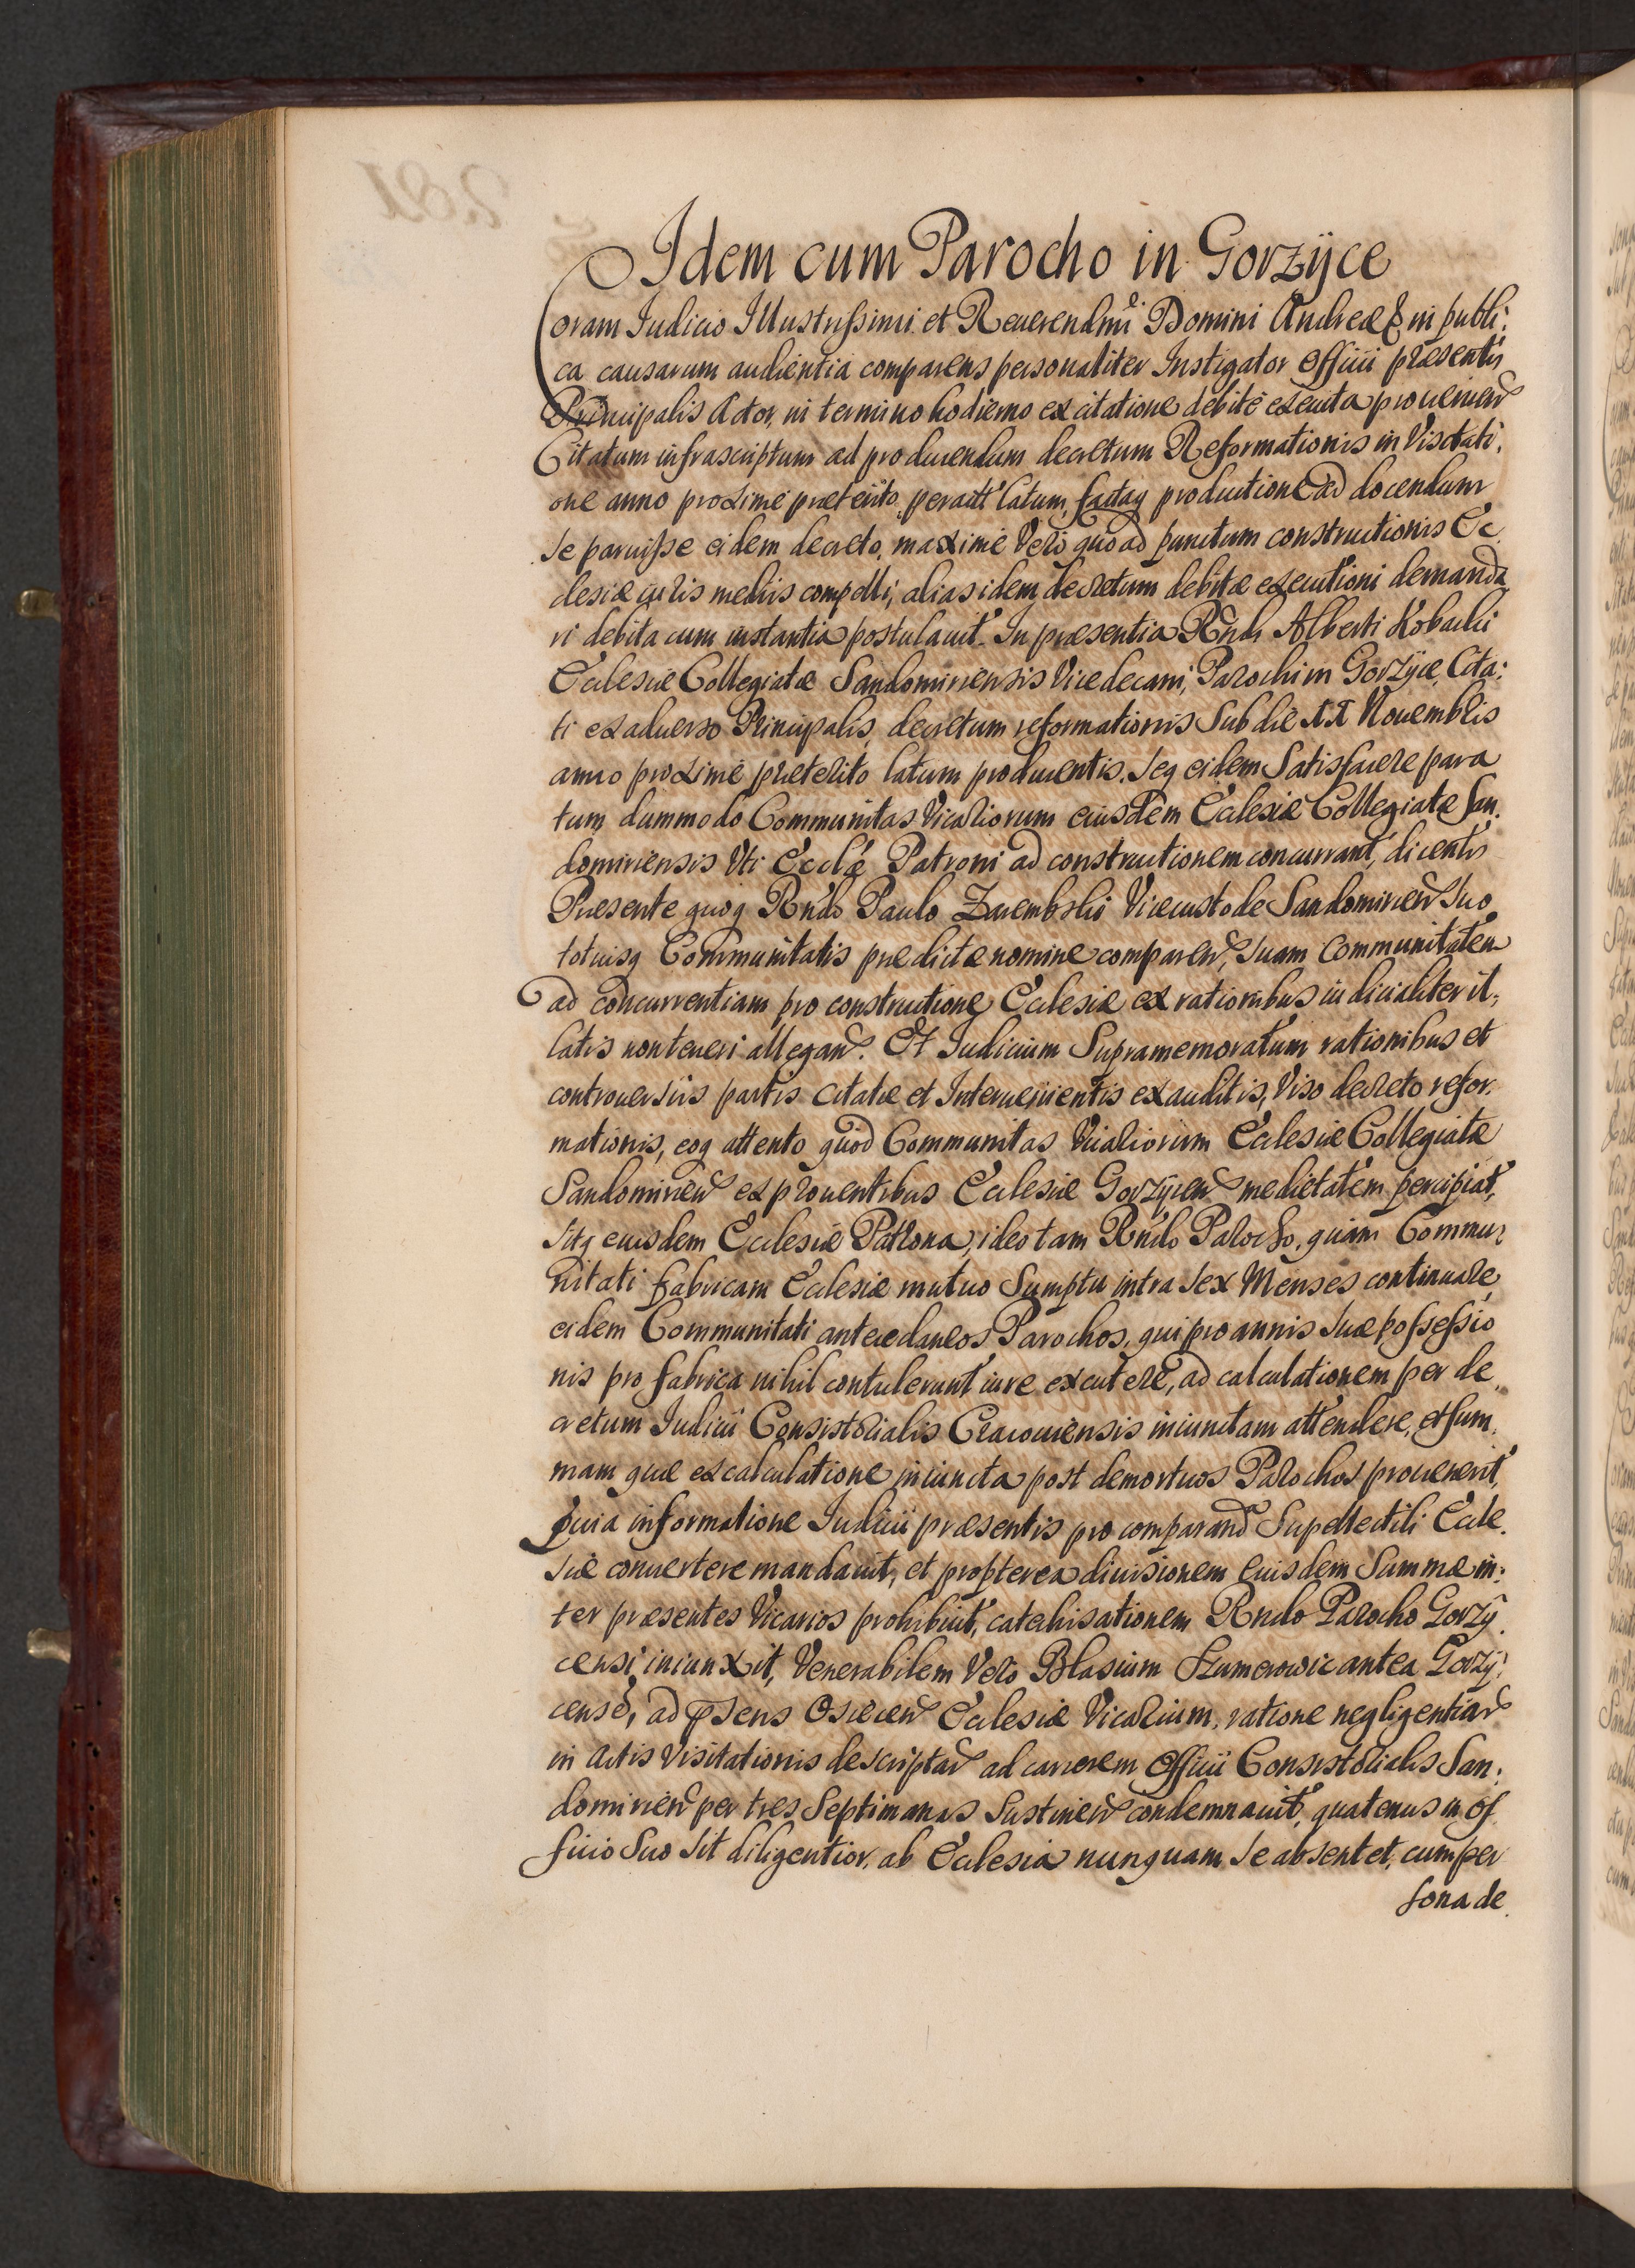 Idem cum Parocho in Gorzÿce
Coram Iudicio Illustrissimi et Reuerendmi Domini Andreæ & in publi:
ca causarum audientia comparens personaliter Instigator Officii præsentis
Principalis Actor, in termino hodierno ex citatione debité executa proueniend
Citatum infrascriptum ad producendum decretum Reformationis in Visitati:
one anno proxime præterito peractt latum, factaq productione ad docendum
se paruisse eidem decreto, maximé Veró quo ad punctum constructionis Ec
clesiæ iuris mediis compelli, alias idem decretum debitæ executioni demanda
ri debita cum instantia postulauit. In præsentia Rndi Alberti Kobacki
Ecclesiæ Collegiatæ Sandomiriensis Vicedecani, Parochi in Gorzÿce, Cita:
ti ex aduerso Principalis, decretum reformationis Sub die XX Nouembris
anno proximé preterito latum producentis. Seq eidem Satisfacere para
tum dummodo Communitas Vicariorum eiusdem Ecclesiæ Collegiatæ San.
domiriensis Vti Ecclæ Patroni ad constructionem concurrant, dicentis
Præsente quoq Rndo Paulo Zarembski Vicecustode Sandomirien Suo
totiusq Communitatis prædictæ nomine comparen, Suam Communitatem
ad concurrentiam pro constructione Ecclesiæ ex rationibus iudicialiter il:
latis non teneri allegan. Et Iudicium Supramemoratum rationibus et
controuersiis partis Citatæ et Interuenientis exauditis, Viso decreto refor.
mationis, eoq attento quod Communitas Vicariorum Ecclesiæ Collegiatæ
Sandomirien ex prouentibus Ecclesiæ Gorzÿcen medietatem percipiat,
Sitq eiusdem Ecclesiæ Patrona, ideo tam Rndo Parocho, quam Commu:
nitati fabricam Ecclesiæ mutuo Sumptu intra Sex Menses continuare,
eidem Communitati antecedaneos Parochos, qui pro annis Suæ possessio
nis pro fabrica nihil contulerunt iure excutere, ad calculationem per de
cretum Iudicii Consistorialis Cracouiensis iniunctam attendere, et Sum.
mam quæ ex calculatione iniuncta post demortuos Parochos prouenerit,
quia informatione Iudicii præsentis pro comparand Supellectili Eccle.
siæ conuertere mandauit, et propterea diuisionem eiusdem Summæ in:
ter præsentes Vicarios prohibuit, catechisationem Rndo Parocho Gorzÿ.
censi iniunxit, Venerabilem Vero Blasium Szumerowic antea Gorzÿ:
censé, ad psens Osiecen Ecclesiæ Vicarium, ratione negligentiar
in Actis Visitationis descriptar ad carcerem Officii Consistorialis San:
domirien per tres Septimanas Sustinen condemnauit, quatenus in of
ficio Suo Sit diligentior, ab Ecclesia nunquam Se absentet, cum per
sona de